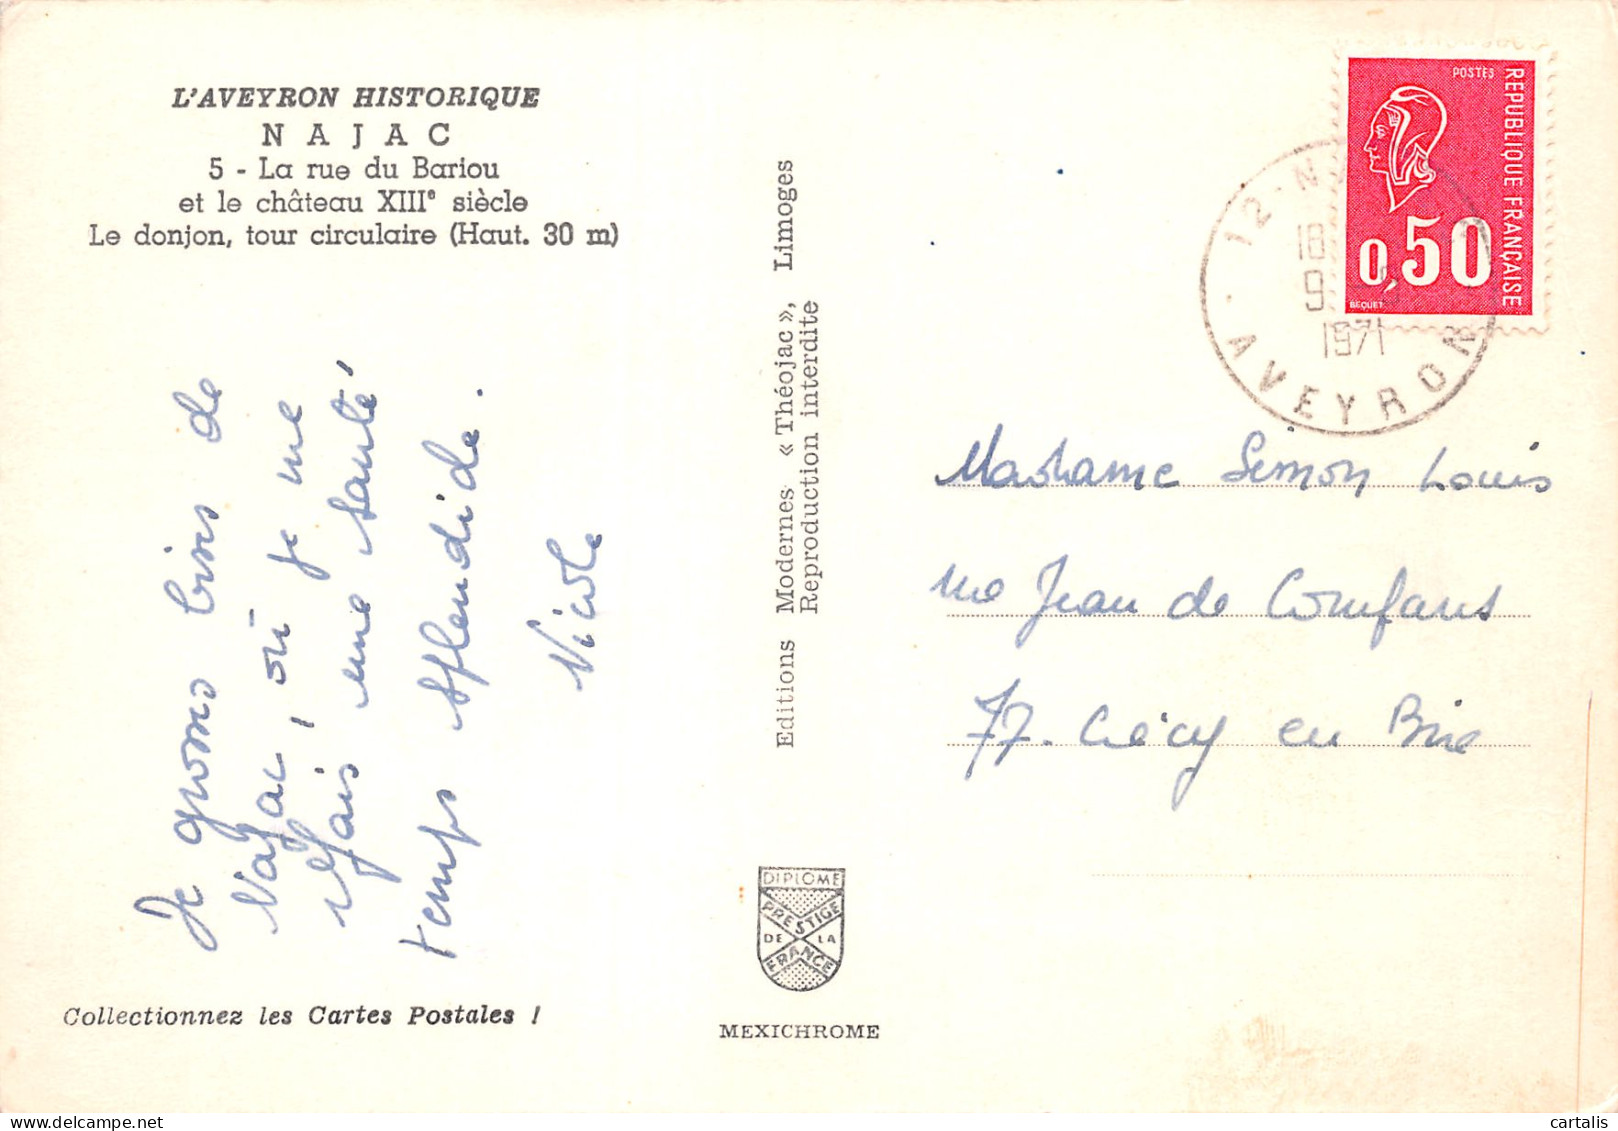 L'AVEYRON HISTORIQUE
NAJAC
5 - La rue du Bariou
et le château XIIIe siècle
Le donjon, tour circulaire (Haut. 30 m)
Je grosses bises de
Najac, où je me
refais une santé
temps splendide.
Nicole
Collectionnez les Cartes Postales !
Editions Modernes « Théojac », Limoges
Reproduction interdite
DIPLOME
PRESTIGE
DE LA
FRANCE
MEXICHROME
POSTES
REPUBLIQUE FRANÇAISE
0,50
BEQUET
12 - N
18
9
1971
AVEYRON
Madame Simon Louis
rue Jean de Compans
77. Crécy en Brie
cartalis